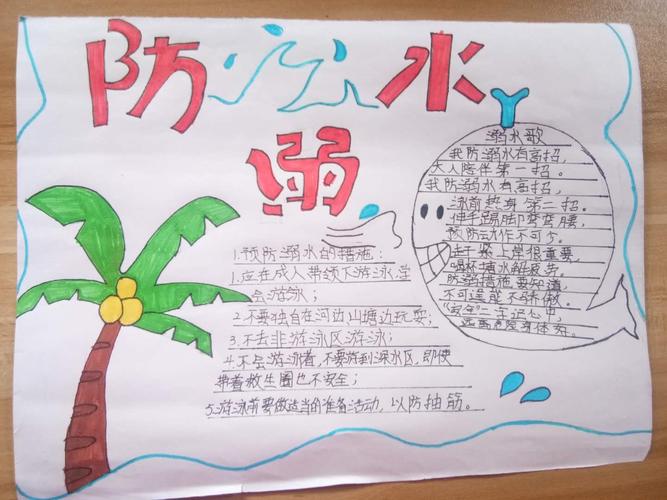 防治水
溺
1.预防溺水的措施:
1.应在成人带领下游泳学
会游泳;
2.不要独自在河边山塘边玩耍;
3.不去非游泳区游泳;
4.不会游泳着,不要游到深水区,即使
带着救生圈也不安全;
5.游泳前要做适当的准备活动,以防抽筋。
溺水歌
我防溺水有高招,
大人陪伴第一招。
我防溺水有高招,
泳前热身第二招。
伸手踢脚弯弯腰,
预防动作不可少。
上岸很重要,
喝杯糖水解疲劳。
防溺措施要知道,
不可逞能不骄傲。
"安全"二字记心中,
身体好。